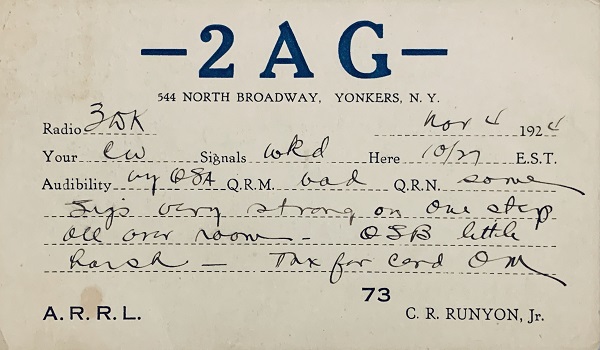 —2AG—
544 NORTH BROADWAY, YONKERS, N. Y.
Radio 3WK Nov 4 1924
Your CW Signals wkd Here 10/27 E.S.T.
Audibility vy QSA Q.R.M. bad Q.R.N. some
Sigs very strong on one step
all over room — QSB little
harsh — Tnx for card OM
73
A. R. R. L. C. R. RUNYON, Jr.